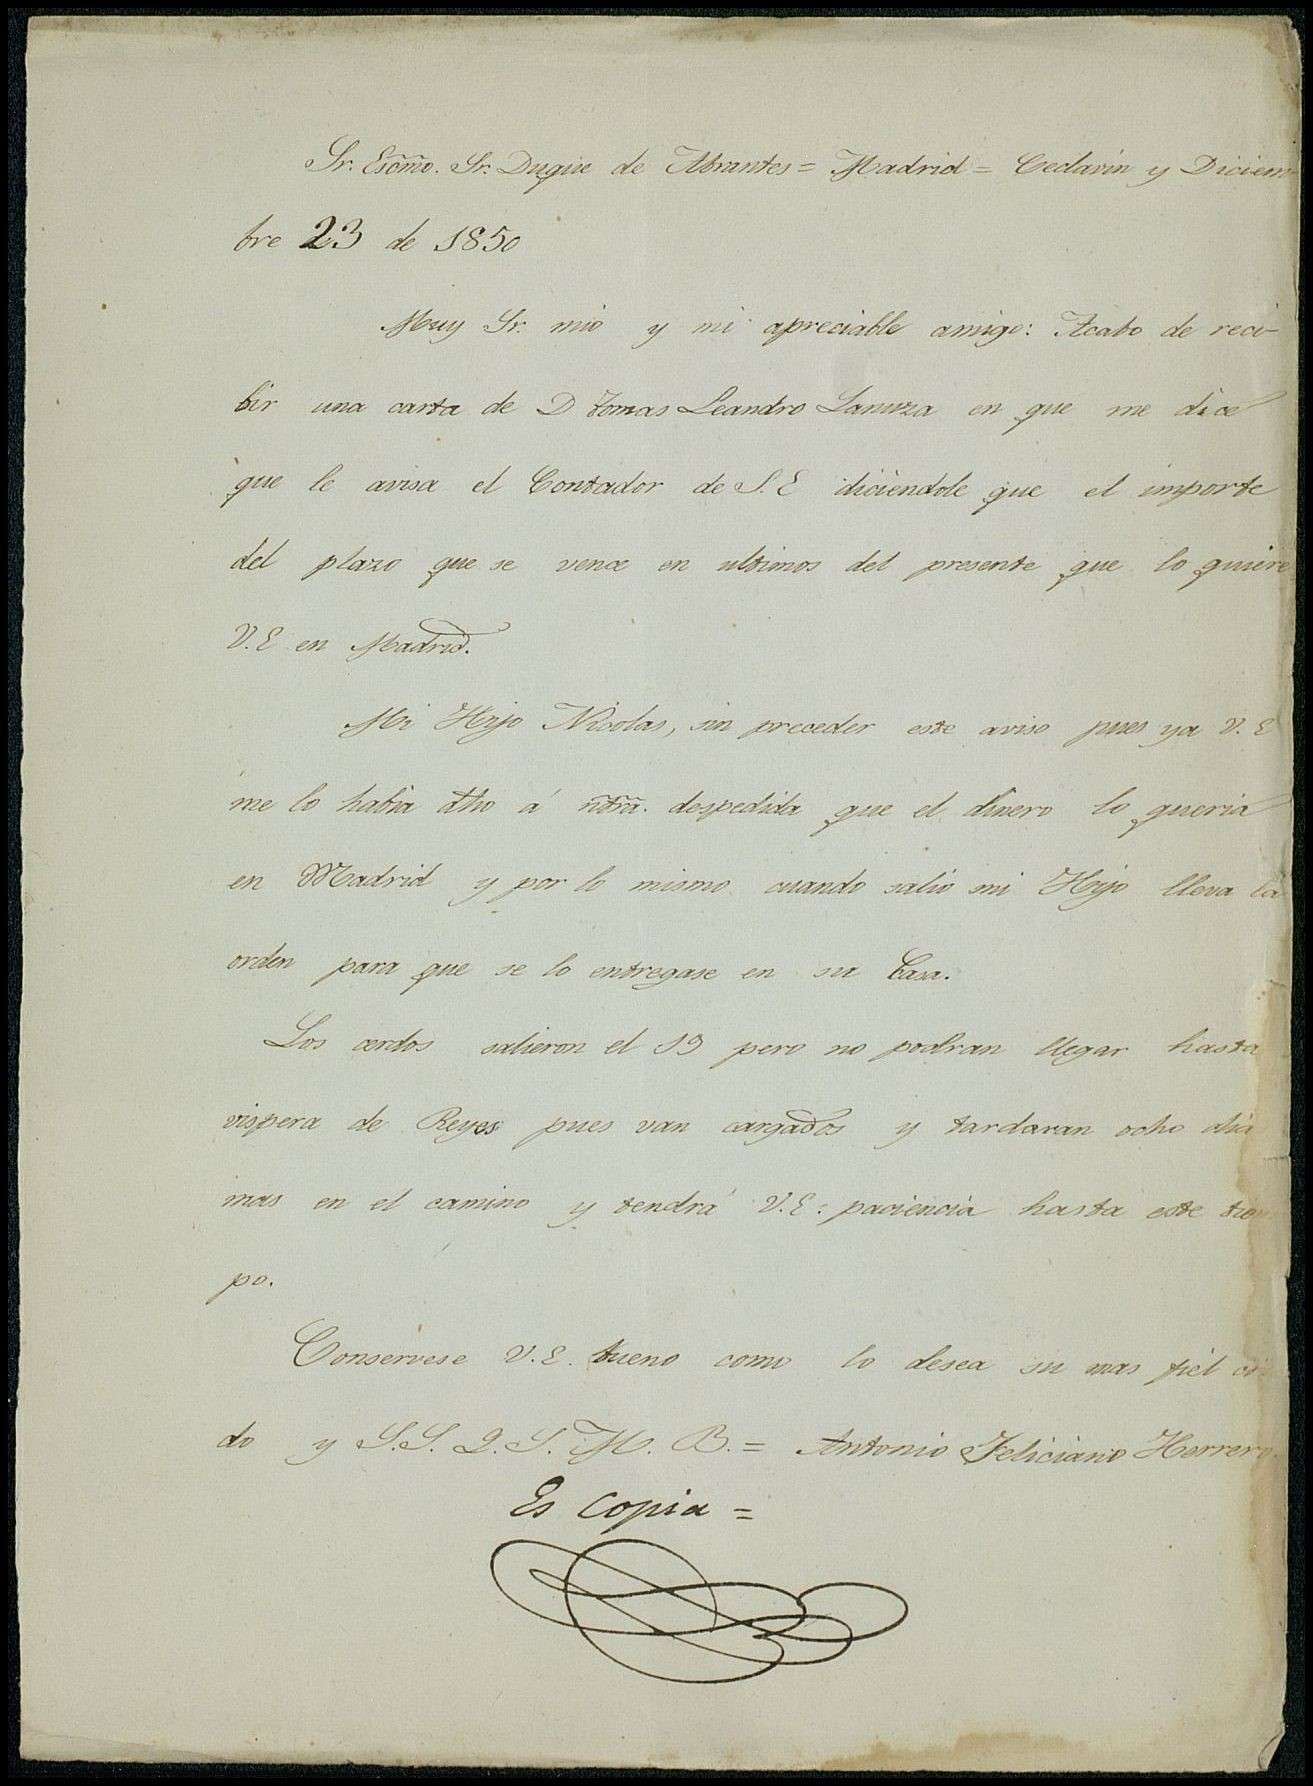 Sr. Esc̃mo. Sr. Duque de Abrantes = Madrid = Ceclavin y Diciem-
bre 23 de 1850
Muy Sr. mio y mi apreciable amigo: Acabo de reci-
bir una carta de D Tomas Leandro Lanuza en que me dice
que le avisa el Contador de S. E diciendole que el importe
del plazo que se vence en ultimos del presente que lo quiere
V. E en Madrid.
Mi Hijo Nicolas, sin preceder este aviso pues ya V. E
me lo habia dho á ñtra. despedida que el dinero lo queria
en Madrid y por lo mismo cuando salio mi Hijo lleva la
orden para que se lo entregase en su Casa.
Los cerdos salieron el 19 pero no podran llegar hasta
vispera de Reyes pues van cargados y tardaran ocho dia
mas en el camino y tendrá V. E: paciencia hasta este tiem
po.
Conservese V. E. bueno como lo desea su mas fiel cri
do y S. S. Q. S. M. B. = Antonio Feliciano Herrero.
Es Copia =